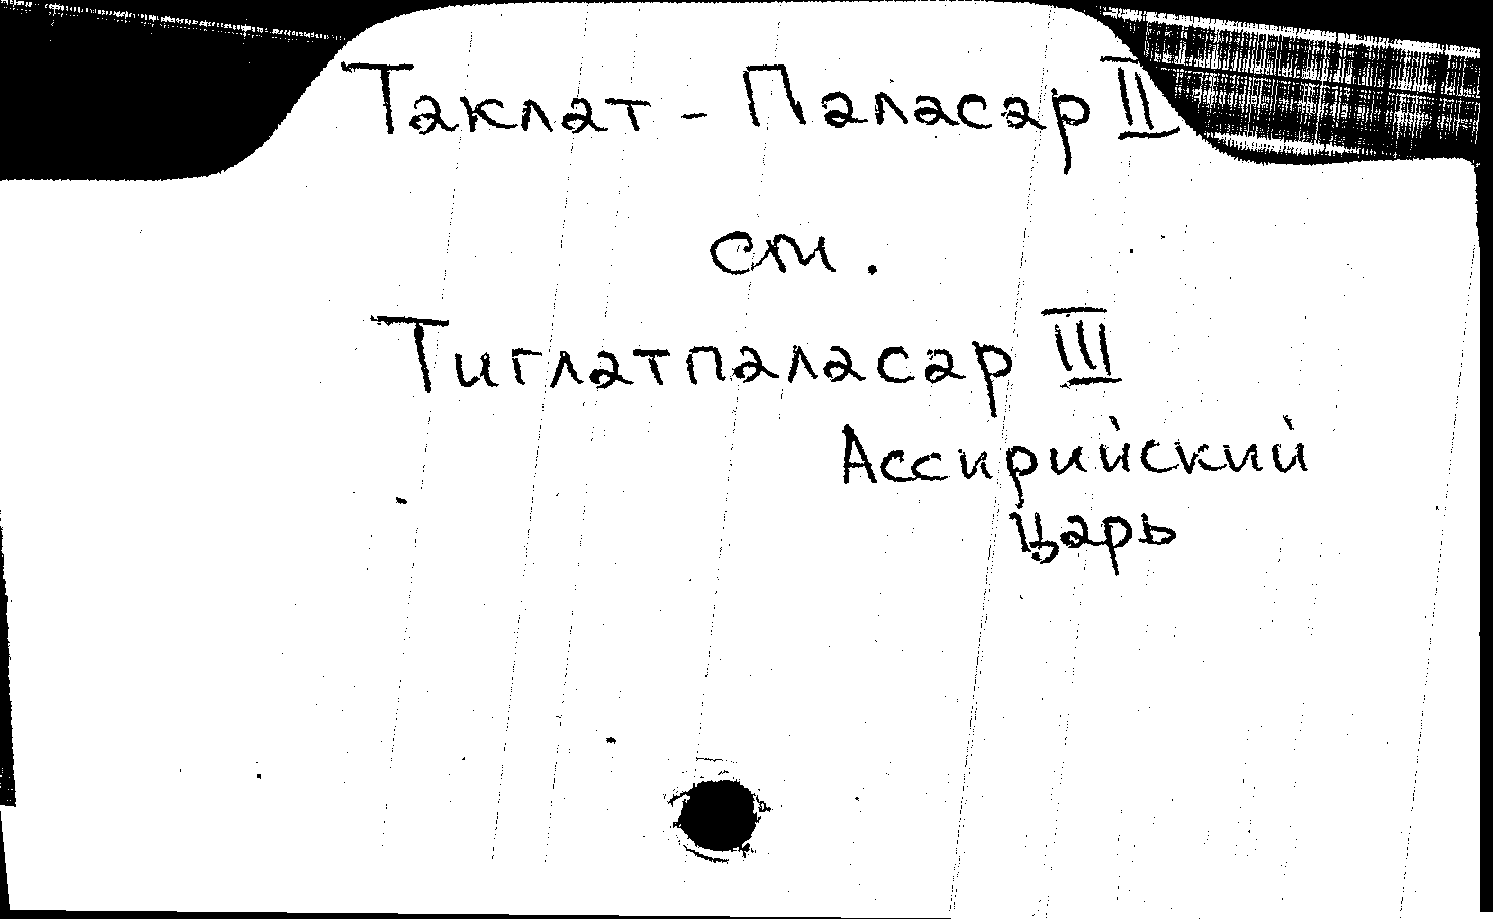 Таклат - Паласар II
см.
Тиглатпаласар III
Ассирийский
царь